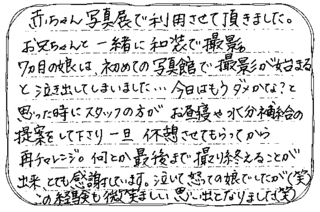 赤ちゃん写真展で利用させて頂きました。
お兄ちゃんと一緒に和装で撮影。
7ヵ月の娘は、初めての写真館で撮影が始まる
と泣き出してしまいました…今日はもうダメかな?と
思った時にスタッフの方が お昼寝や水分補給の
提案をして下さり一旦 休憩させてもらってから
再チャレンジ。何とか最後まで撮り終えることが
出来、とても感謝しています。泣いて怒っての娘でしたが(笑)
この経験も微笑ましい思い出となりました(笑)